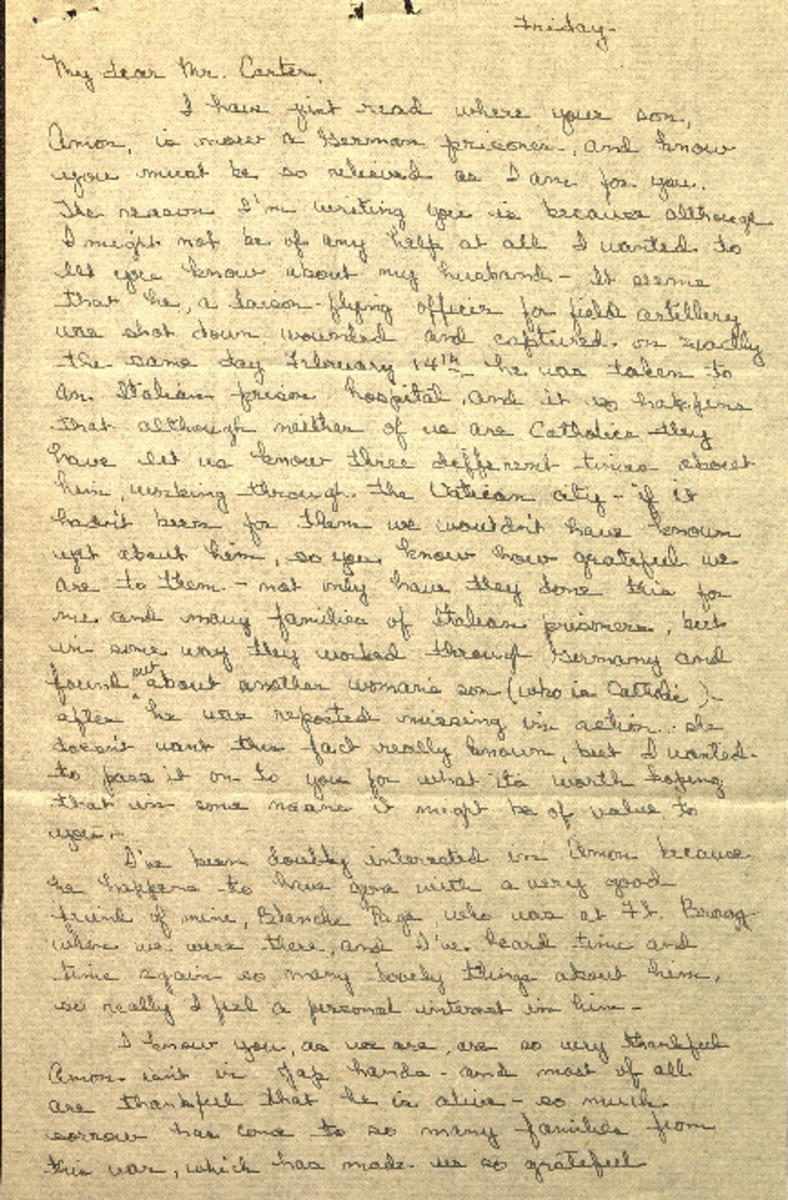 Friday-
My dear Mr. Carter,
I have just read where your son,
Amon, is now a German prisoner, and know
you must be so relieved as I am for you.
The reason I'm writing you is because although
I might not be of any help at all I wanted to
let you know about my husband - It seems
that he, a liason-flying officer for field artillery
was shot down wounded and captured on exactly
the same day February 14th - he was taken to
an Italian prison hospital, and it so happens
that although neither of us are Catholics they
have let us know three different times about
him, working through the Vatican city - if it
hadn't been for them we wouldn't have known
yet about him, so you know how grateful we
are to them - not only have they done this for
me and many families of Italian prisoners, but
in some way they worked through Germany and
found out about another woman's son (who is Catholic) -
after he was reported missing in action. She
doesn't want this fact really known, but I wanted
to pass it on to you for what its worth hoping
that in some means it might be of value to
you -
I've been doubly interested in Amon because
he happens to have gone with a very good
friend of mine, Blanche Page who was at Ft. Bragg
when we were there, and I've heard time and
time again so many lovely things about him,
so really I feel a personal interest in him -
I know you, as we are, are so very thankful
Amon isn't in Jap hands - and most of all
are thankful that he is alive - so much
sorrow has come to so many families from
this war, which has made us so grateful